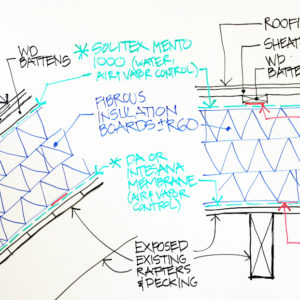 WD
BATTENS
* SOLITEX MENTO
1000 (WATER,
AIR & VAPOR CONTROL)
FIBROUS
INSULATION
BOARDS ±R60
* DA OR
INTESANA
MEMBRANE
(AIR & VAPOR
CONTROL)
EXPOSED
EXISTING
RAFTERS
& DECKING
ROOFI
SHEAT
WD.
BATTE